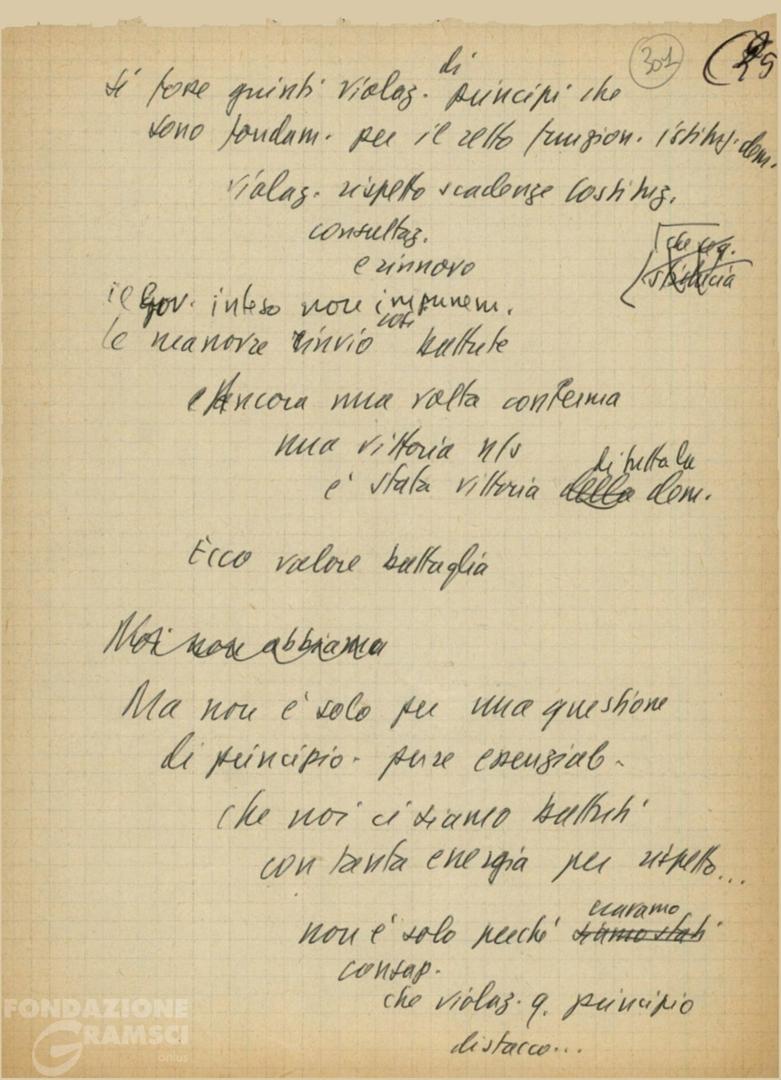 301
25
di
si forse quindi violaz. principi che
sono fondam. per il retto funzion. istituz. dem.
violaz. rispetto scadenze costituz.
consultaz.
e rinnovo
che
il Gov. inteso non impunem.
così
le manovre rinvio battute
Ancora una volta conferma
una vittoria n/s
di tutta la
e' stata vittoria della dem.
Ecco valore battaglia
Noi non abbiamo
Ma non e' solo per una questione
di principio - pure essenziale -
che noi ci siamo battuti
con tanta energia per rispetto...
eravamo
non e' solo perché siamo stati
consap.
che violaz. q. principio
distacco...
FONDAZIONE
GRAMSCI
onlus